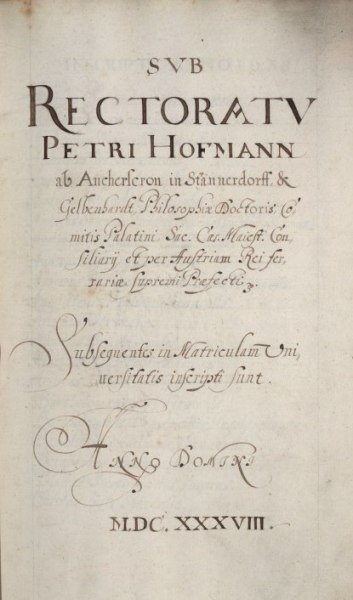 SVB
RECTORATV
PETRI HOFMANN
ab Ancherscron in Stännerdorff. &
Gelbenhardt, Philosophiæ Doctoris, Co
mitis Palatini Sac. Cæs. Maiest. Con,
siliarij et per Austriam Rei fer,
rariæ supremi Præfecti.
Subsequentes in Matriculam Uni,
versitatis inscripti sunt.
ANNO DOMINI
M.DC.XXXVIII.